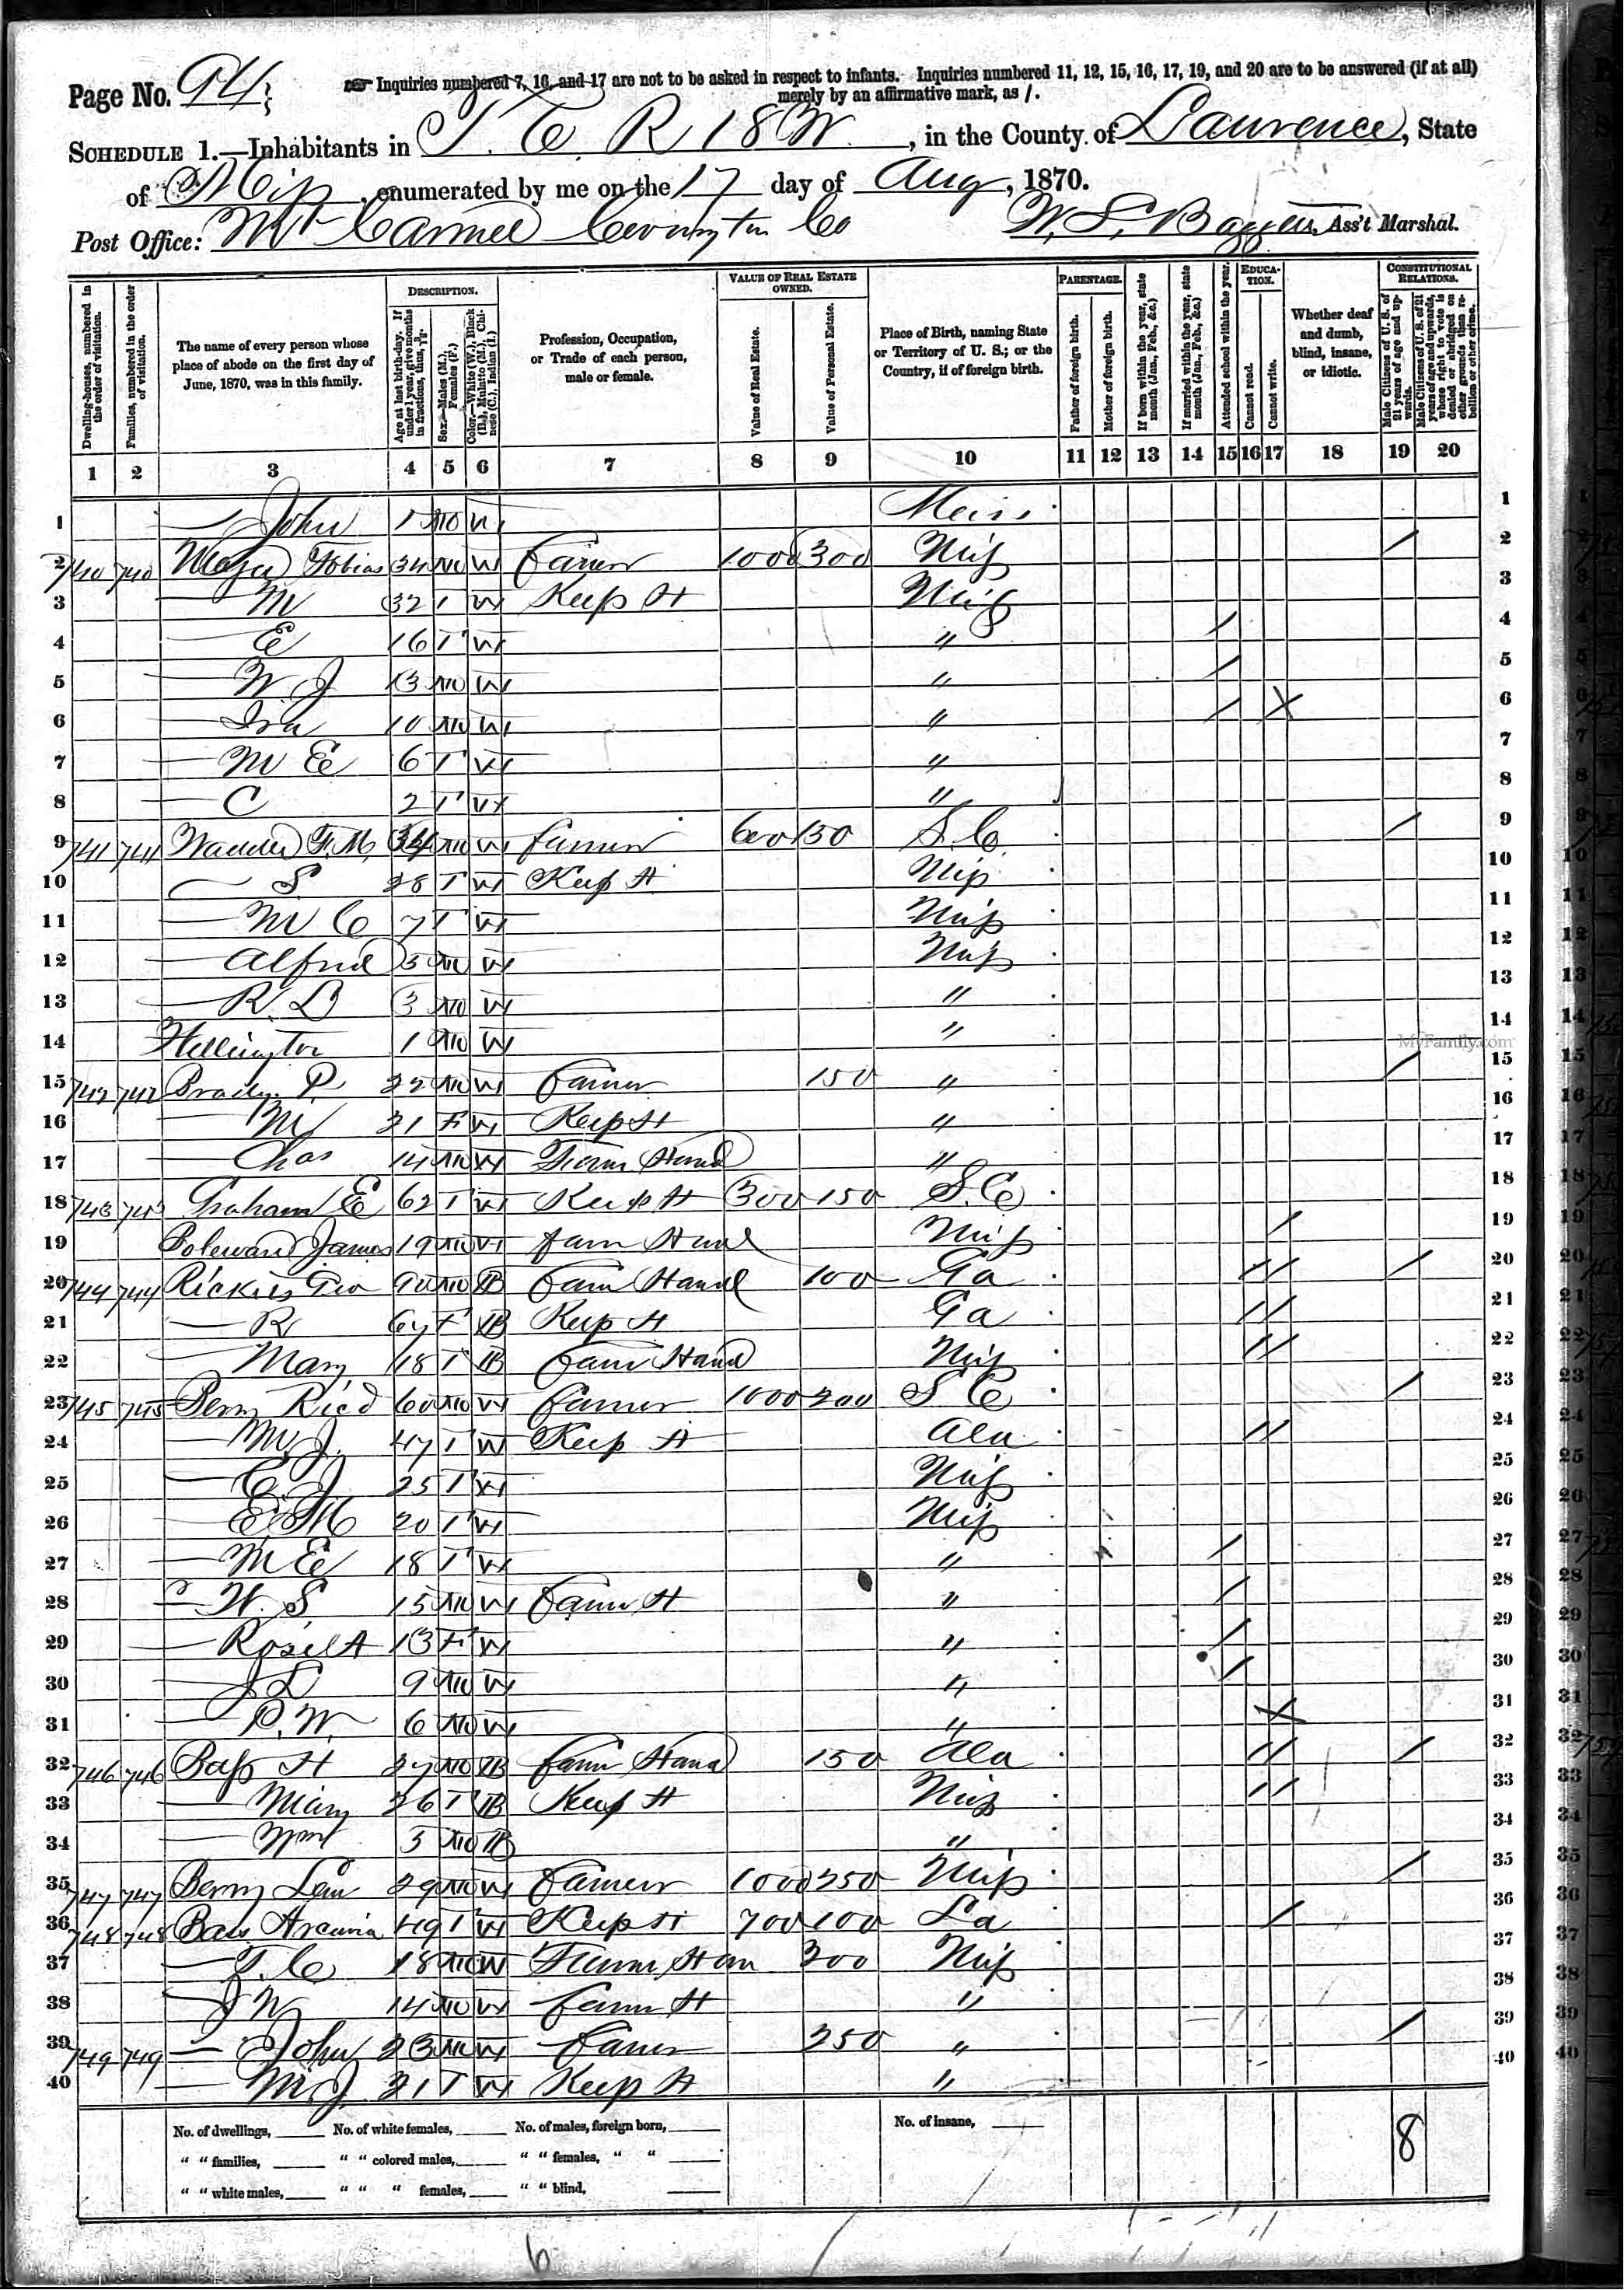 Page No. 94
Inquiries numbered 7, 16, and 17 are not to be asked in respect to infants. Inquiries numbered 11, 12, 15, 16, 17, 19, and 20 are to be answered (if at all)
merely by an affirmative mark, as /.
SCHEDULE 1.—Inhabitants in T. 6. R 18 W, in the County of Lawrence, State
of Miss, enumerated by me on the 17 day of Aug, 1870.
Post Office: Mt Carmel Covington Co W. S. Ass't Marshal.
Dwelling-houses, numbered in the order of visitation.
Families, numbered in the order of visitation.
The name of every person whose place of abode on the first day of June, 1870, was in this family.
DESCRIPTION.
Age at last birth-day. If under 1 year, give months in fractions, thus,
Sex.—Males (M.), Females (F.)
Color.—White (W.), Black (B.), Mulatto (M.), Chinese (C.), Indian (I.)
Profession, Occupation, or Trade of each person, male or female.
VALUE OF REAL ESTATE OWNED.
Value of Real Estate.
Value of Personal Estate.
Place of Birth, naming State or Territory of U. S.; or the Country, if of foreign birth.
PARENTAGE.
Father of foreign birth.
Mother of foreign birth.
If born within the year, state month (Jan., Feb., &c.)
If married within the year, state month (Jan., Feb., &c.)
Attended school within the year.
EDUCATION.
Cannot read.
Cannot write.
Whether deaf and dumb, blind, insane, or idiotic.
CONSTITUTIONAL RELATIONS.
Male Citizens of U. S. of 21 years of age and upwards.
Male Citizens of U. S. of 21 years of age and upwards, whose right to vote is denied or abridged on other grounds than rebellion or other crime.
1 2 3 4 5 6 7 8 9 10 11 12 13 14 15 16 17 18 19 20
1 — John 1 M W Miss 1
2 740 740 Tobias 34 M W Farmer 1000 300 Miss / 2
3 — M 32 F W Keep H Miss 3
4 — E 16 F W " / 4
5 — W J 13 M W " / 5
6 — Ira 10 M W " / X 6
7 — M E 6 F W " 7
8 — C 2 F W " 8
9 741 741 F. M. 34 M W Farmer 600 150 S. C. / 9
10 — S 28 F W Keep H Miss 10
11 — M C 7 F W Miss 11
12 — Alfred 5 M W Miss 12
13 — R. D 3 M W " 13
14 1 M W " 14
15 742 742 Brady P. 22 M W Farmer 150 " / 15
16 — M 21 F W Keep H " 16
17 — Chas 14 M W Farm Hand " 17
18 743 743 Graham E 62 F W Keep H 300 150 S. C 18
19 Polevard James 19 M W Farm Hand Miss / 19
20 744 744 Geo 90 M B Farm Hand 100 Ga / / / 20
21 — R 67 F B Keep H Ga / / 21
22 — Mary 18 F B Farm Hand Miss / / 22
23 745 745 Berry Ricd 60 M W Farmer 1000 200 S C / 23
24 — M J. 47 F W Keep H Ala / / 24
25 — E. J 25 F W Miss 25
26 — E M 20 F W Miss 26
27 — M E 18 F W " / 27
28 — W. S 15 M W Farm H " / 28
29 — Rosel A 13 F W " / 29
30 — J D 9 M W " / 30
31 — P. W. 6 M W " X 31
32 746 746 Bass H 27 M B Farm Hand 150 Ala / / / 32
33 — Mary 26 F B Keep H Miss / / 33
34 — Wm 5 M B " 34
35 747 747 Berry Lem 29 M W Farmer 1000 250 Miss / 35
36 748 748 49 F W Keep H 700 100 La / 36
37 — T. C 18 M W Farm Han 300 Miss 37
38 — J W 14 M W Farm H " 38
39 749 749 — John 23 M W Farmer 250 " / 39
40 — M. J. 21 F W Keep H " 40
No. of dwellings, No. of white females, No. of males, foreign born, No. of insane,
" " families, " " colored males, " " females, " " 8
" " white males, " " " females, " " blind,
6
MyFamily.com